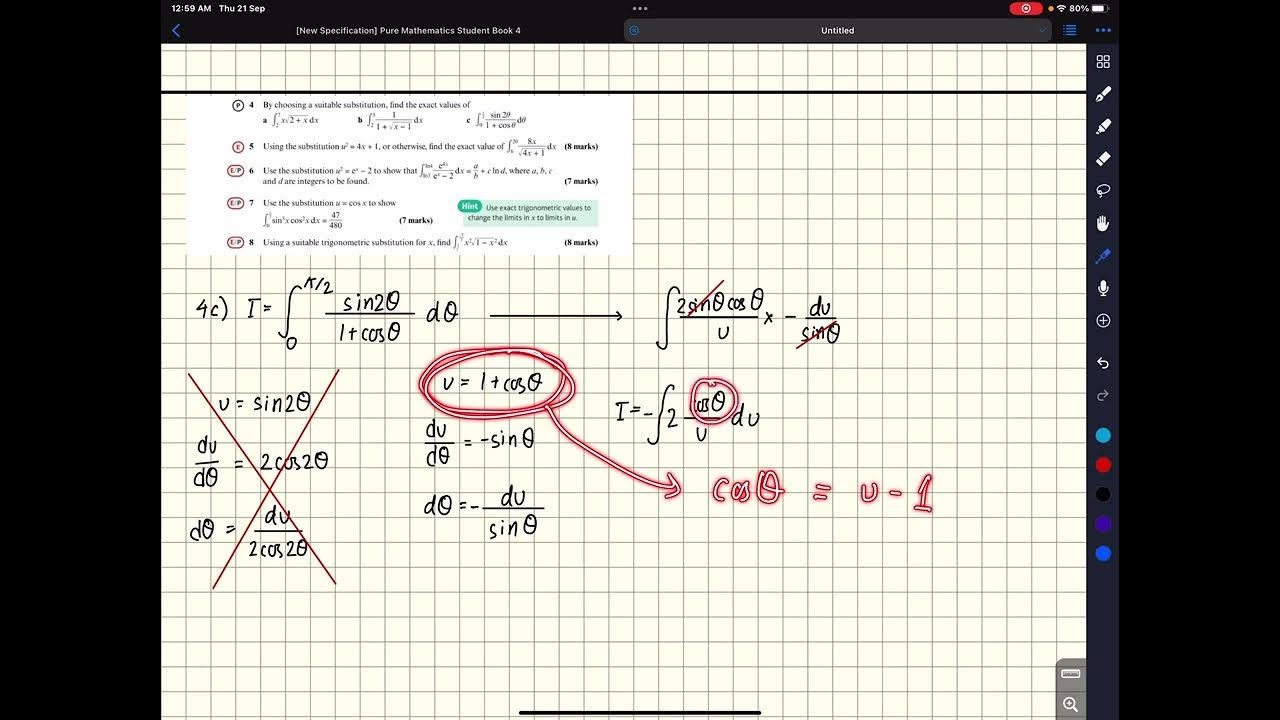 12:59 AM Thu 21 Sep
80%
[New Specification] Pure Mathematics Student Book 4
Untitled
P 4 By choosing a suitable substitution, find the exact values of
a ∫ x√(2 + x) dx b ∫ 1/(1 + √(x − 1)) dx c ∫ sin 2θ/(1 + cos θ) dθ
E 5 Using the substitution u² = 4x + 1, or otherwise, find the exact value of ∫₆²⁰ 8x/√(4x + 1) dx (8 marks)
E/P 6 Use the substitution u² = eˣ − 2 to show that ∫ e⁴ˣ/(eˣ − 2) dx = a/b + c ln d, where a, b, c
and d are integers to be found. (7 marks)
E/P 7 Use the substitution u = cos x to show
∫ sin³x cos²x dx = 47/480 (7 marks)
Hint Use exact trigonometric values to
change the limits in x to limits in u.
E/P 8 Using a suitable trigonometric substitution for x, find ∫ x²√(1 − x²) dx (8 marks)
4c) I = ∫₀^(π/2) sin2θ/(1+cosθ) dθ → ∫ 2sinθcosθ/u × − du/sinθ
u = sin2θ
du/dθ = 2cos2θ
dθ = du/(2cos2θ)
u = 1+cosθ
du/dθ = -sinθ
dθ = - du/sinθ
I = -∫ 2 cosθ/u du
cosθ = u - 1